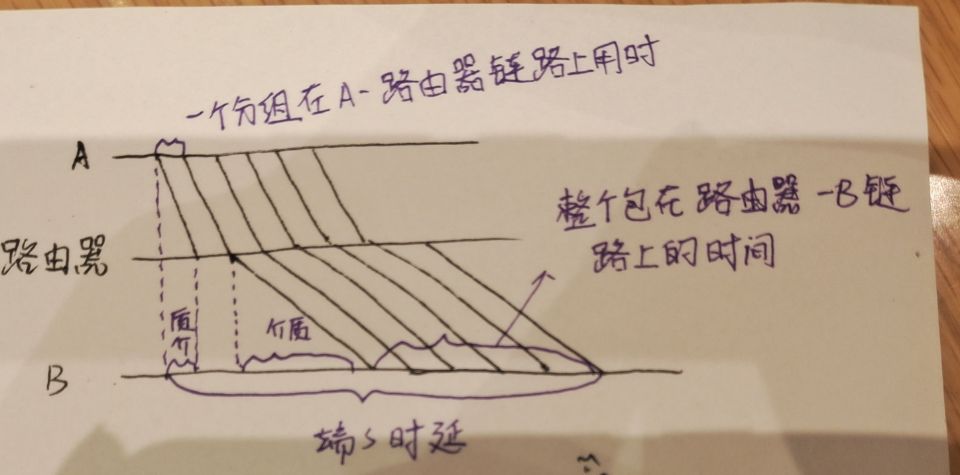 一个分组在A-路由器链路上用时
A
整个包在路由器-B链
路上的时间
路由器
质
介
介质
B
端s时延